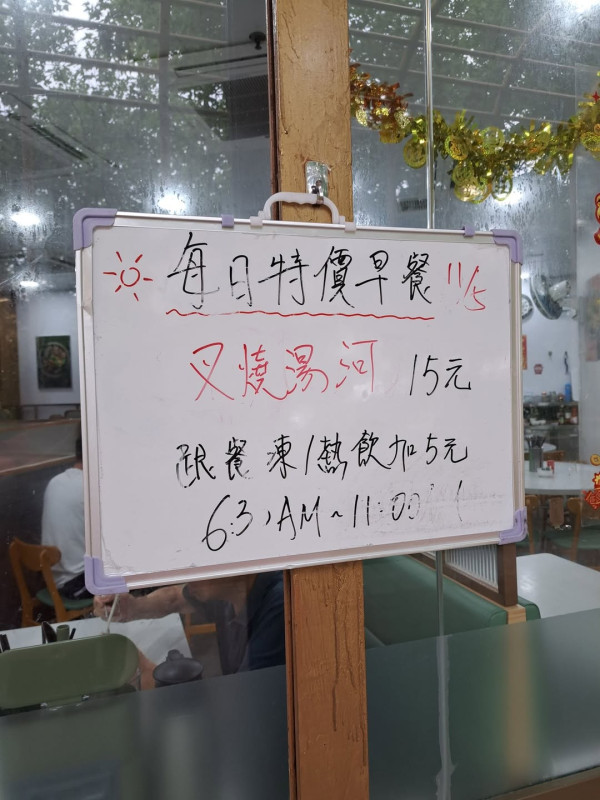 每日特價早餐 11/5
叉燒湯河 15元
跟餐凍/熱飲加5元
6:30AM~11:00